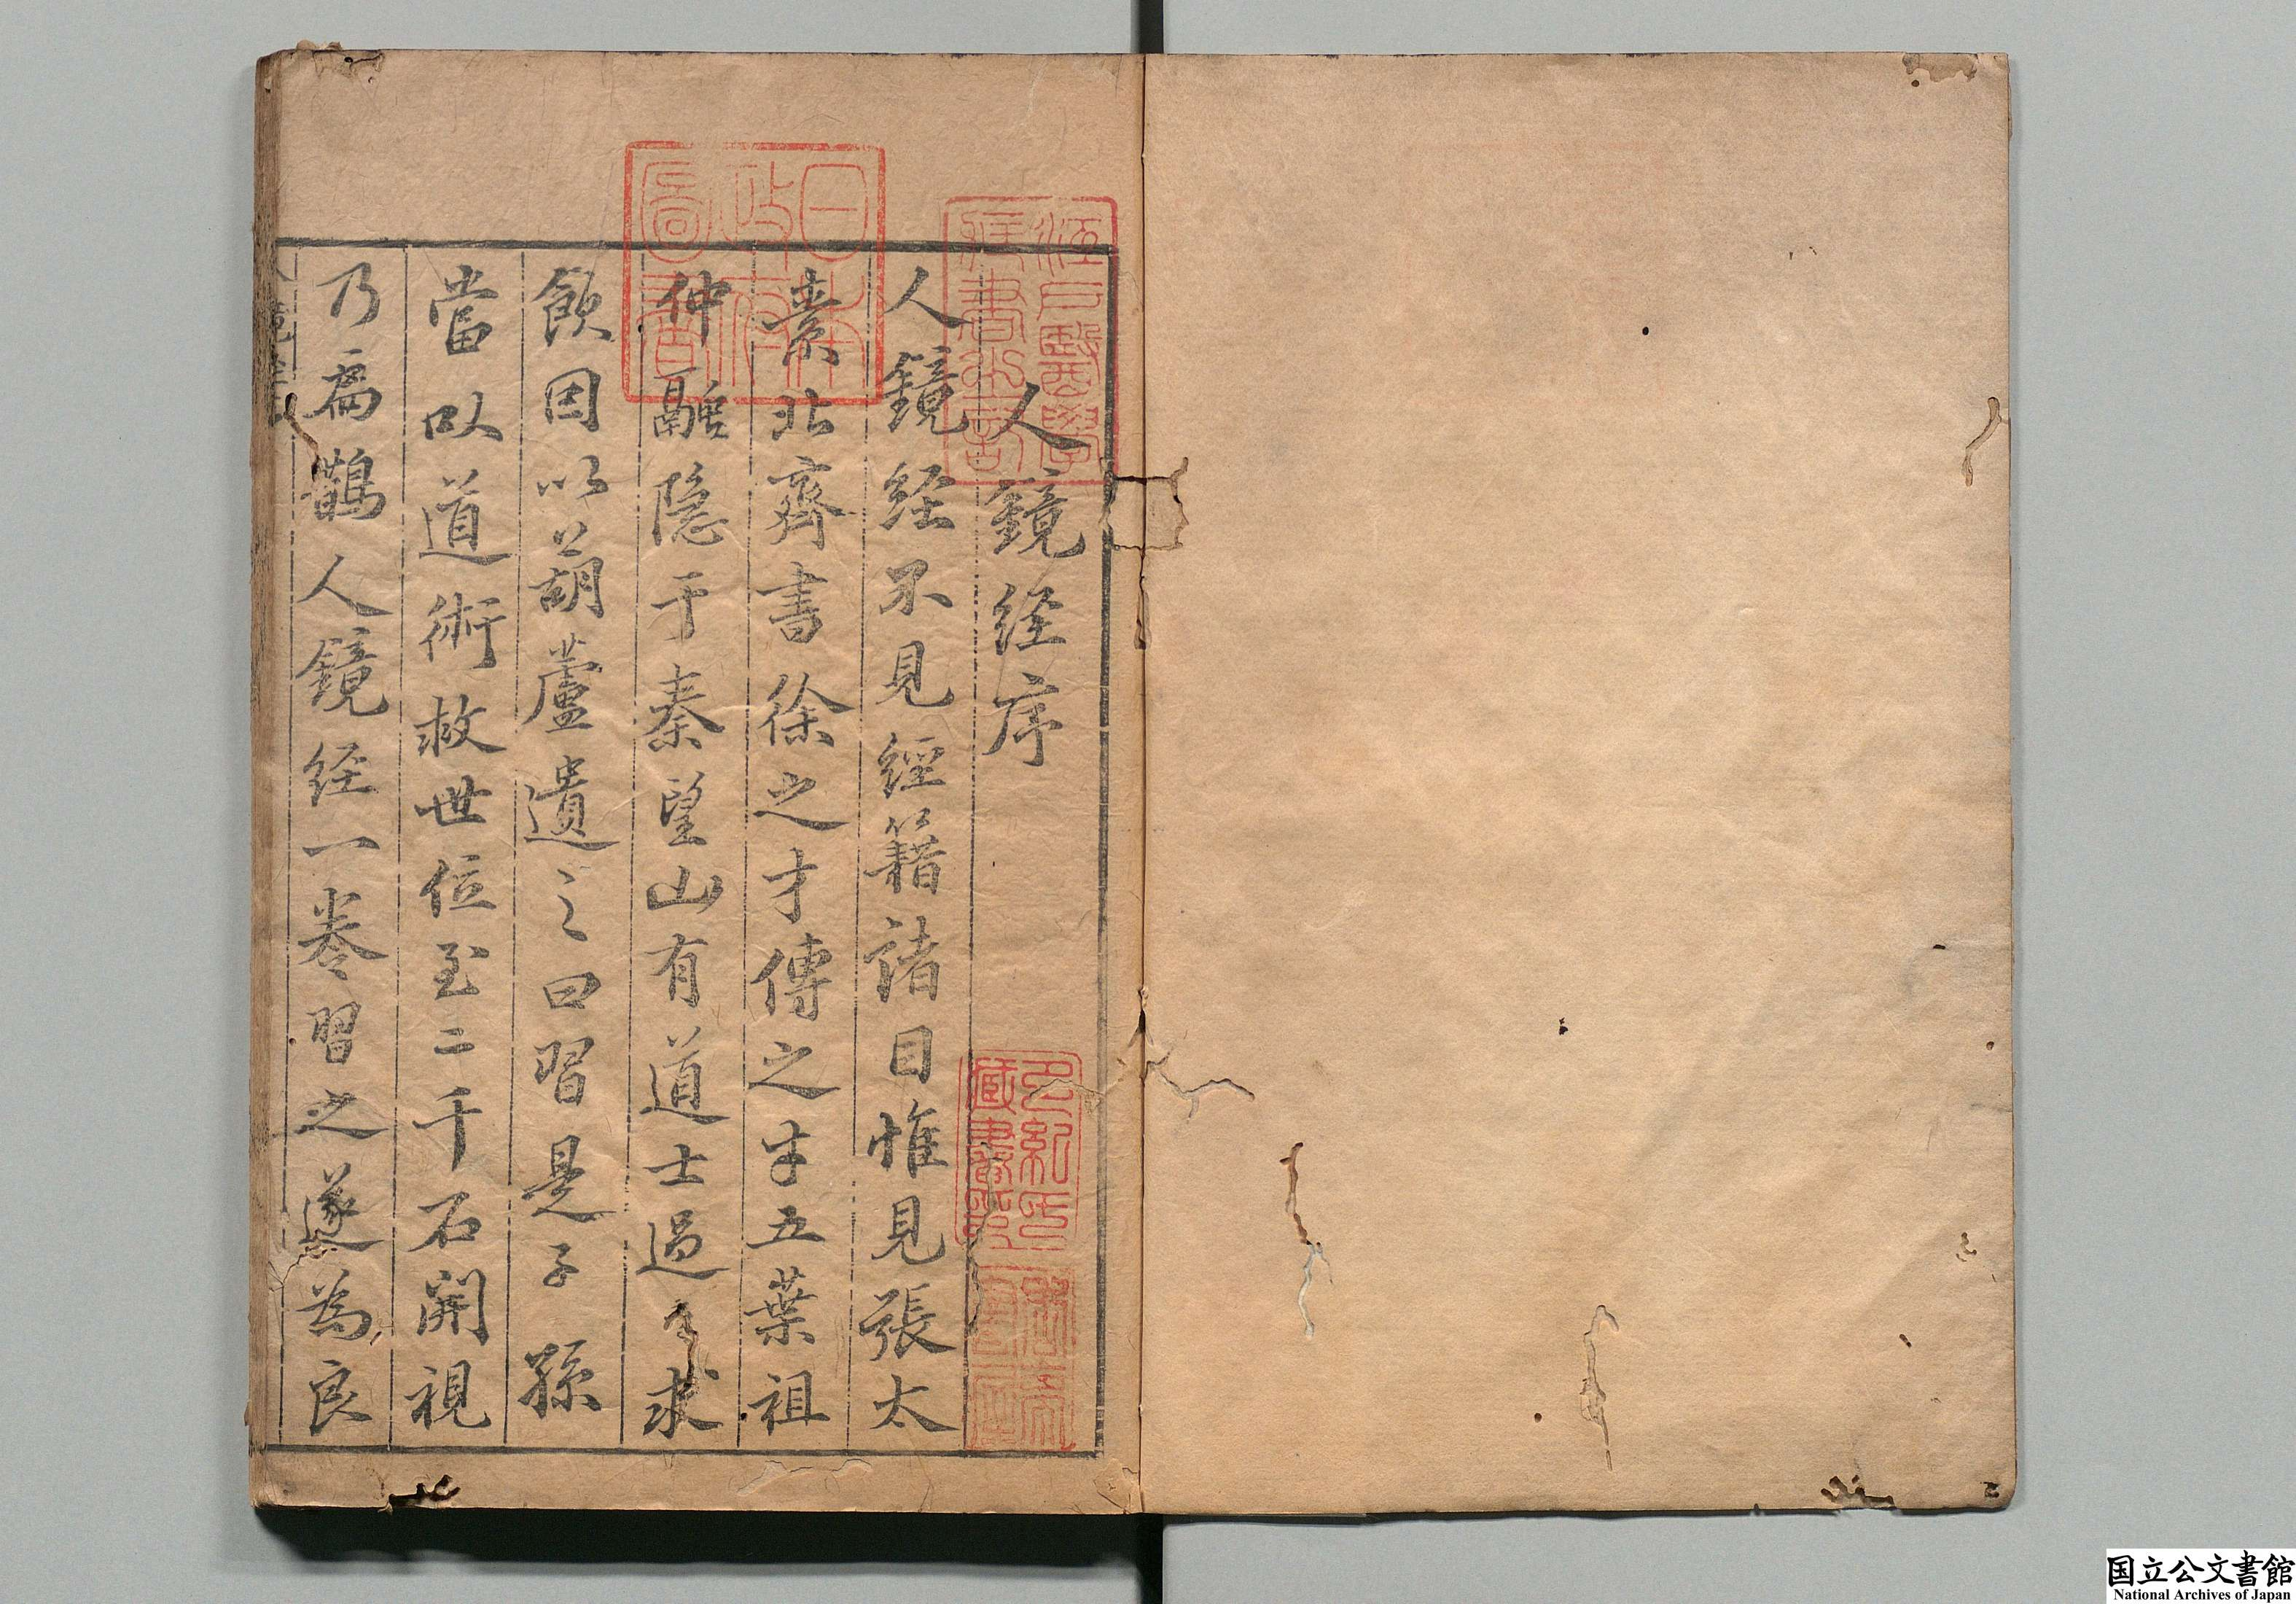 人鏡経序
人鏡経不見經籍諸目惟見張太
素北齊書徐之才傳之才五葉祖
仲融隠于秦望山有道士過々求
飲因以葫蘆遺之曰習是子孫
當以道術救世位至二千石開視
乃扁鵲人鏡経一巻習之遂為良
日本
政府
圖書
江戸醫學
藏書之記
国立公文書館
National Archives of Japan